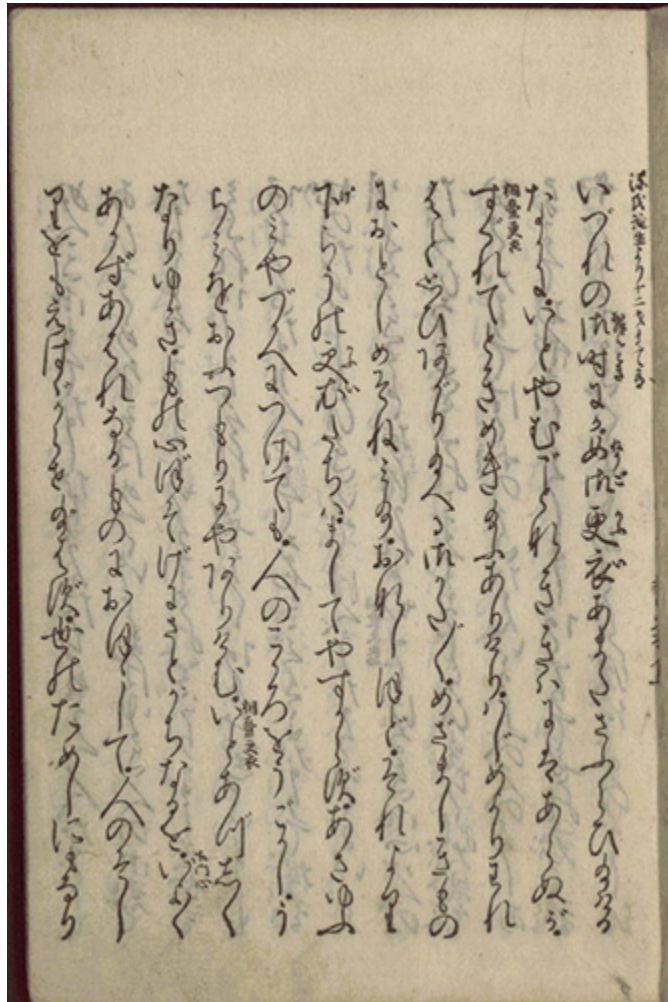 いづれの御時にか。女御更衣あまたさふらひ給ける
なかに。いとやむごとなきゝはにはあらぬが。
すぐれてときめき給ふありけり。はじめよりわれ
はと思ひあがり給へる御かた〴〵。めざましきもの
におとしめそねみ給。おなじほど。それより
下らうの更衣たちは。ましてやすからず。あさゆふ
のみやづかへにつけても。人のこゝろをうごかし。う
らみをおふつもりにやありけむ。いとあづしく
なりゆき。もの心ぼそげにさとがちなるを。いよ〳〵
あかずあはれなるものにおぼほして。人のそし
りをもえはゞからせ給はず。世のためしにもなり